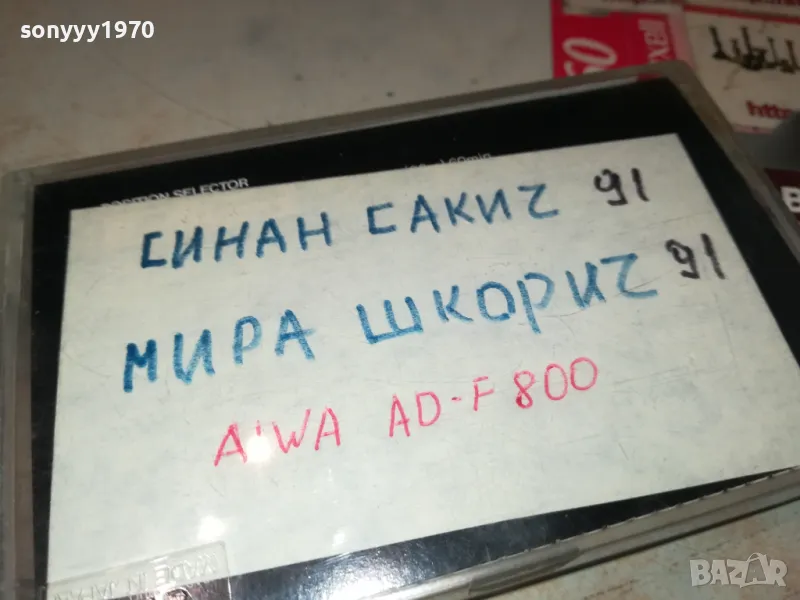 sonyyy1970
60
POSITION SELECTOR
60min
СИНАН САКИЧ 91
МИРА ШКОРИЧ 91
AIWA AD-F 800
MADE IN JAPAN
BAZAR